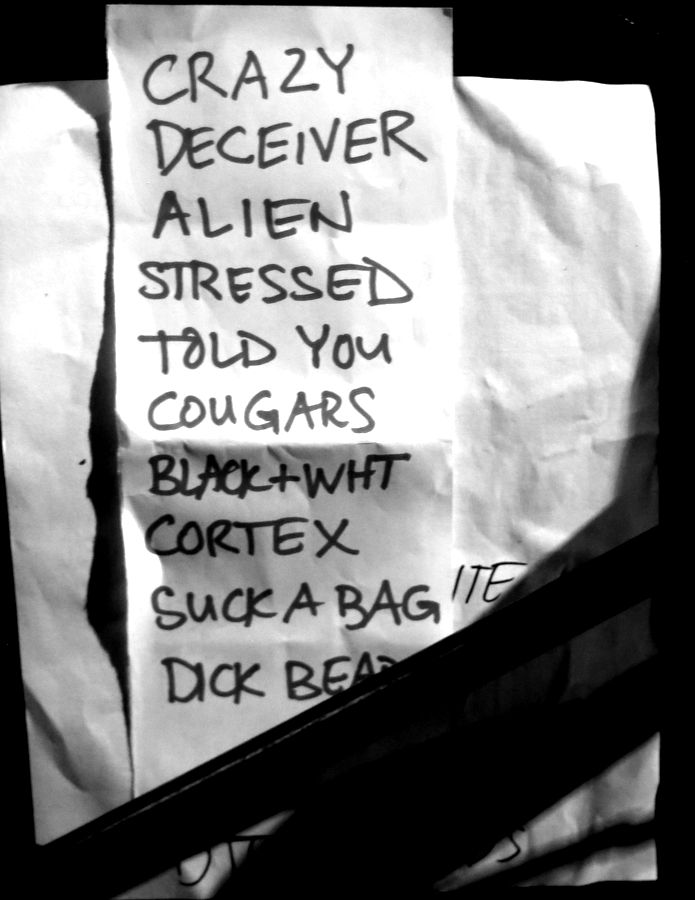 CRAZY
DECEIVER
ALIEN
STRESSED
TOLD YOU
COUGARS
BLACK+WHT
CORTEX
SUCK A BAG
ITE
DICK